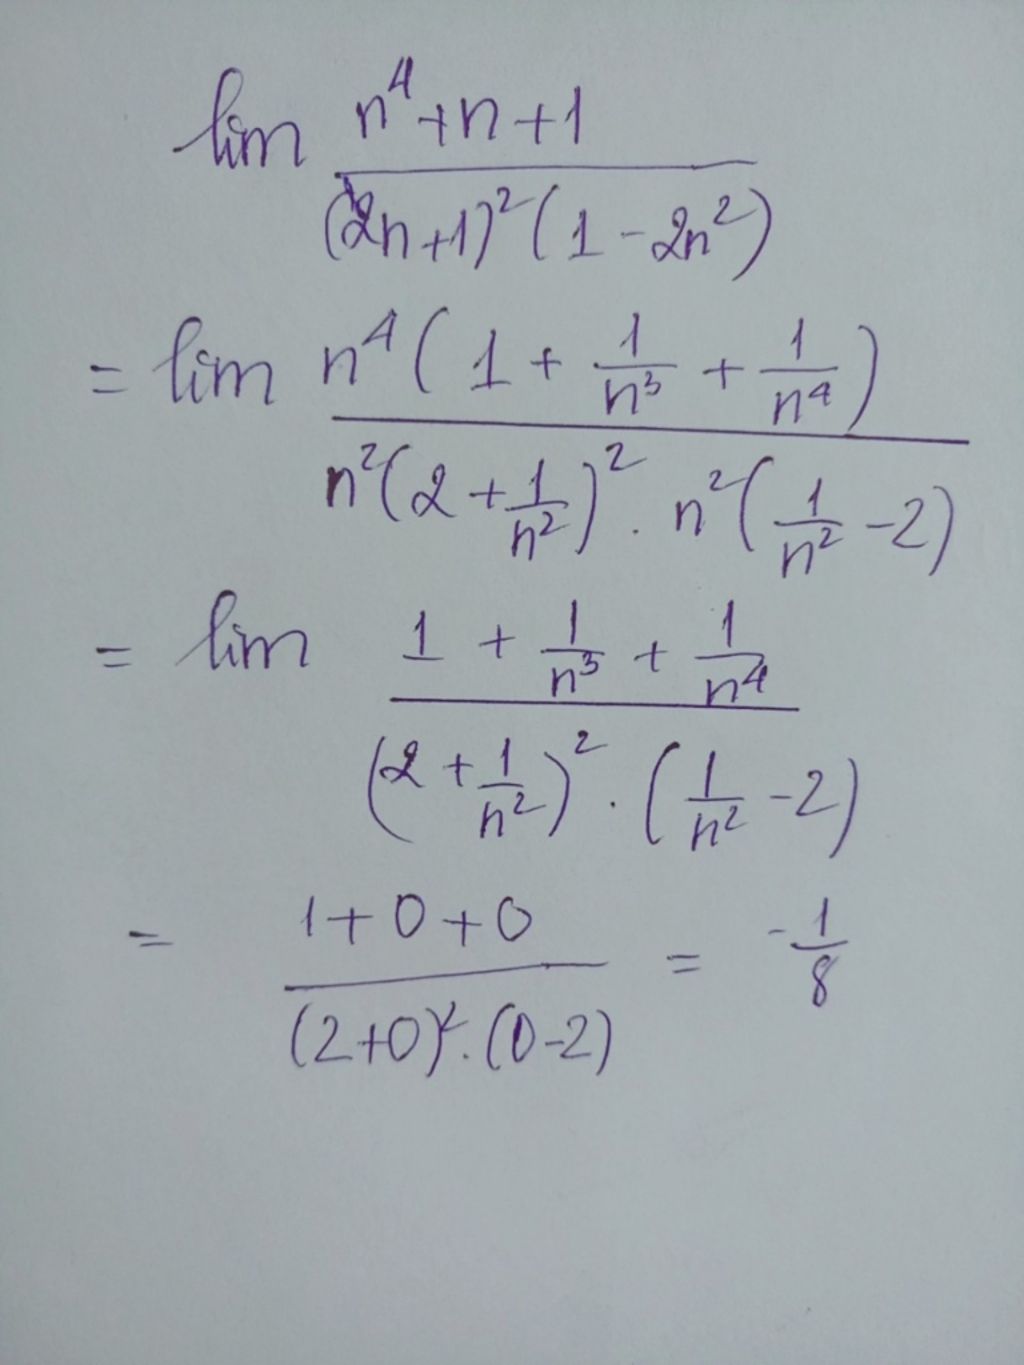 lim (n⁴+n+1)/((2n+1)²(1-2n²))
= lim (n⁴(1 + 1/n³ + 1/n⁴))/(n²(2 + 1/n²)² . n²(1/n² - 2))
= lim (1 + 1/n³ + 1/n⁴)/((2 + 1/n²)² . (1/n² - 2))
= (1+0+0)/((2+0)².(0-2)) = -1/8